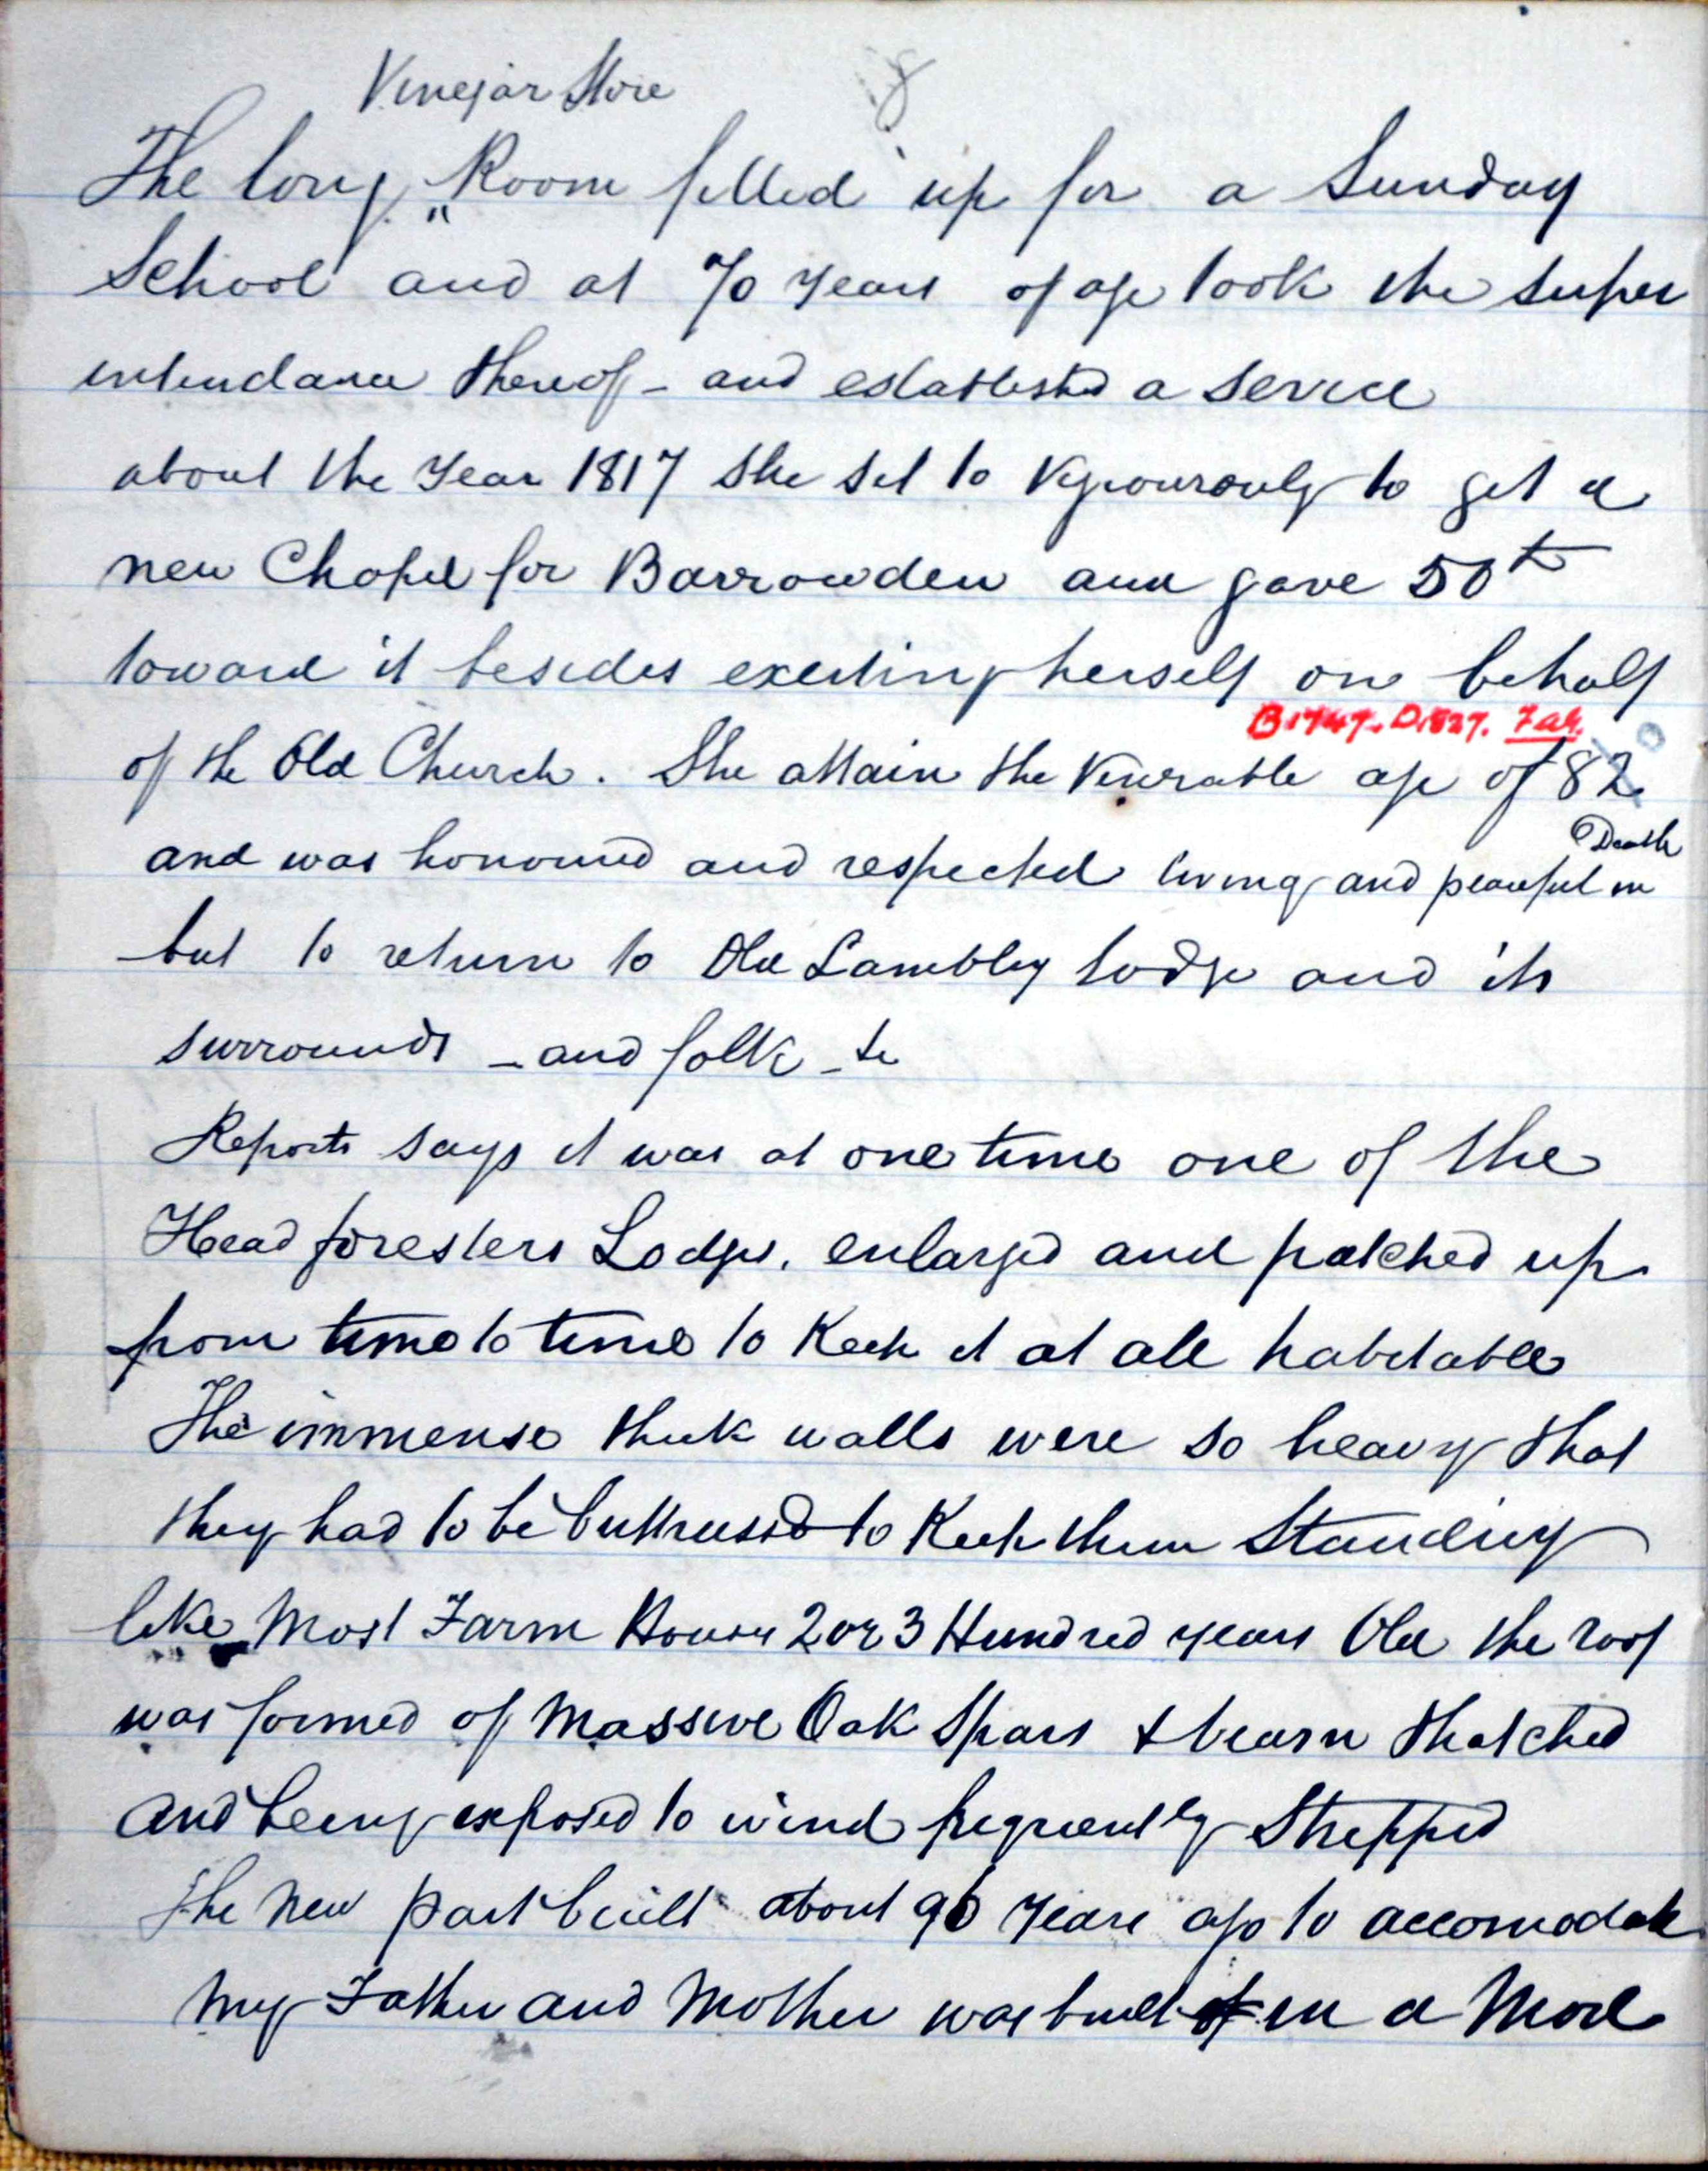 Vinegar Store
8
The long " Room fitted up for a Sunday
School and at 70 years of age took the super
intendance thereof - and established a service
about the Year 1817 She set to Vigourously to get a
new Chapel for Barrowden and gave 50
toward it besides exerting herself on behalf
B 1747. D 1827.
of the Old Church. She attain the Venerable age of 82
Death
and was honoured and respected living and peaceful in
but to return to Old Lambley Lodge and its
surrounds - and folk -
Reports says it was at one time one of the
Head foresters Lodges. enlarged and patched up
from time to time to Keep it at all habitable
The immense thick walls were so heavy that
they had to be buttressed to Keep them Standing
like Most Farm Houses 2 or 3 Hundred years Old the roof
was formed of Massive Oak Spars & beams thatched
and being exposed to wind frequently Stripped
the New part built about 90 Years ago to accomodate
My Father and Mother was built of in a More